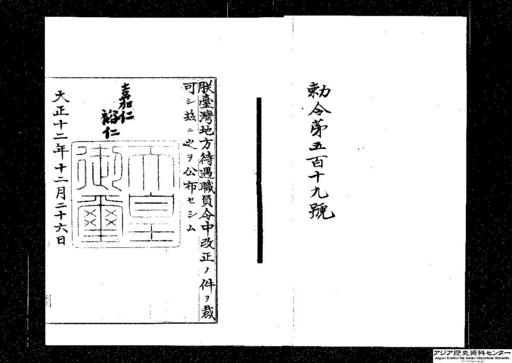 勅令第五百十九號
朕臺灣地方待遇職員令中改正ノ件ヲ裁
可シ玆ニ之ヲ公布セシム
嘉仁
裕仁
天皇
御璽
大正十二年十二月二十六日
アジア歴史資料センター
Japan Center for Asian Historical Records